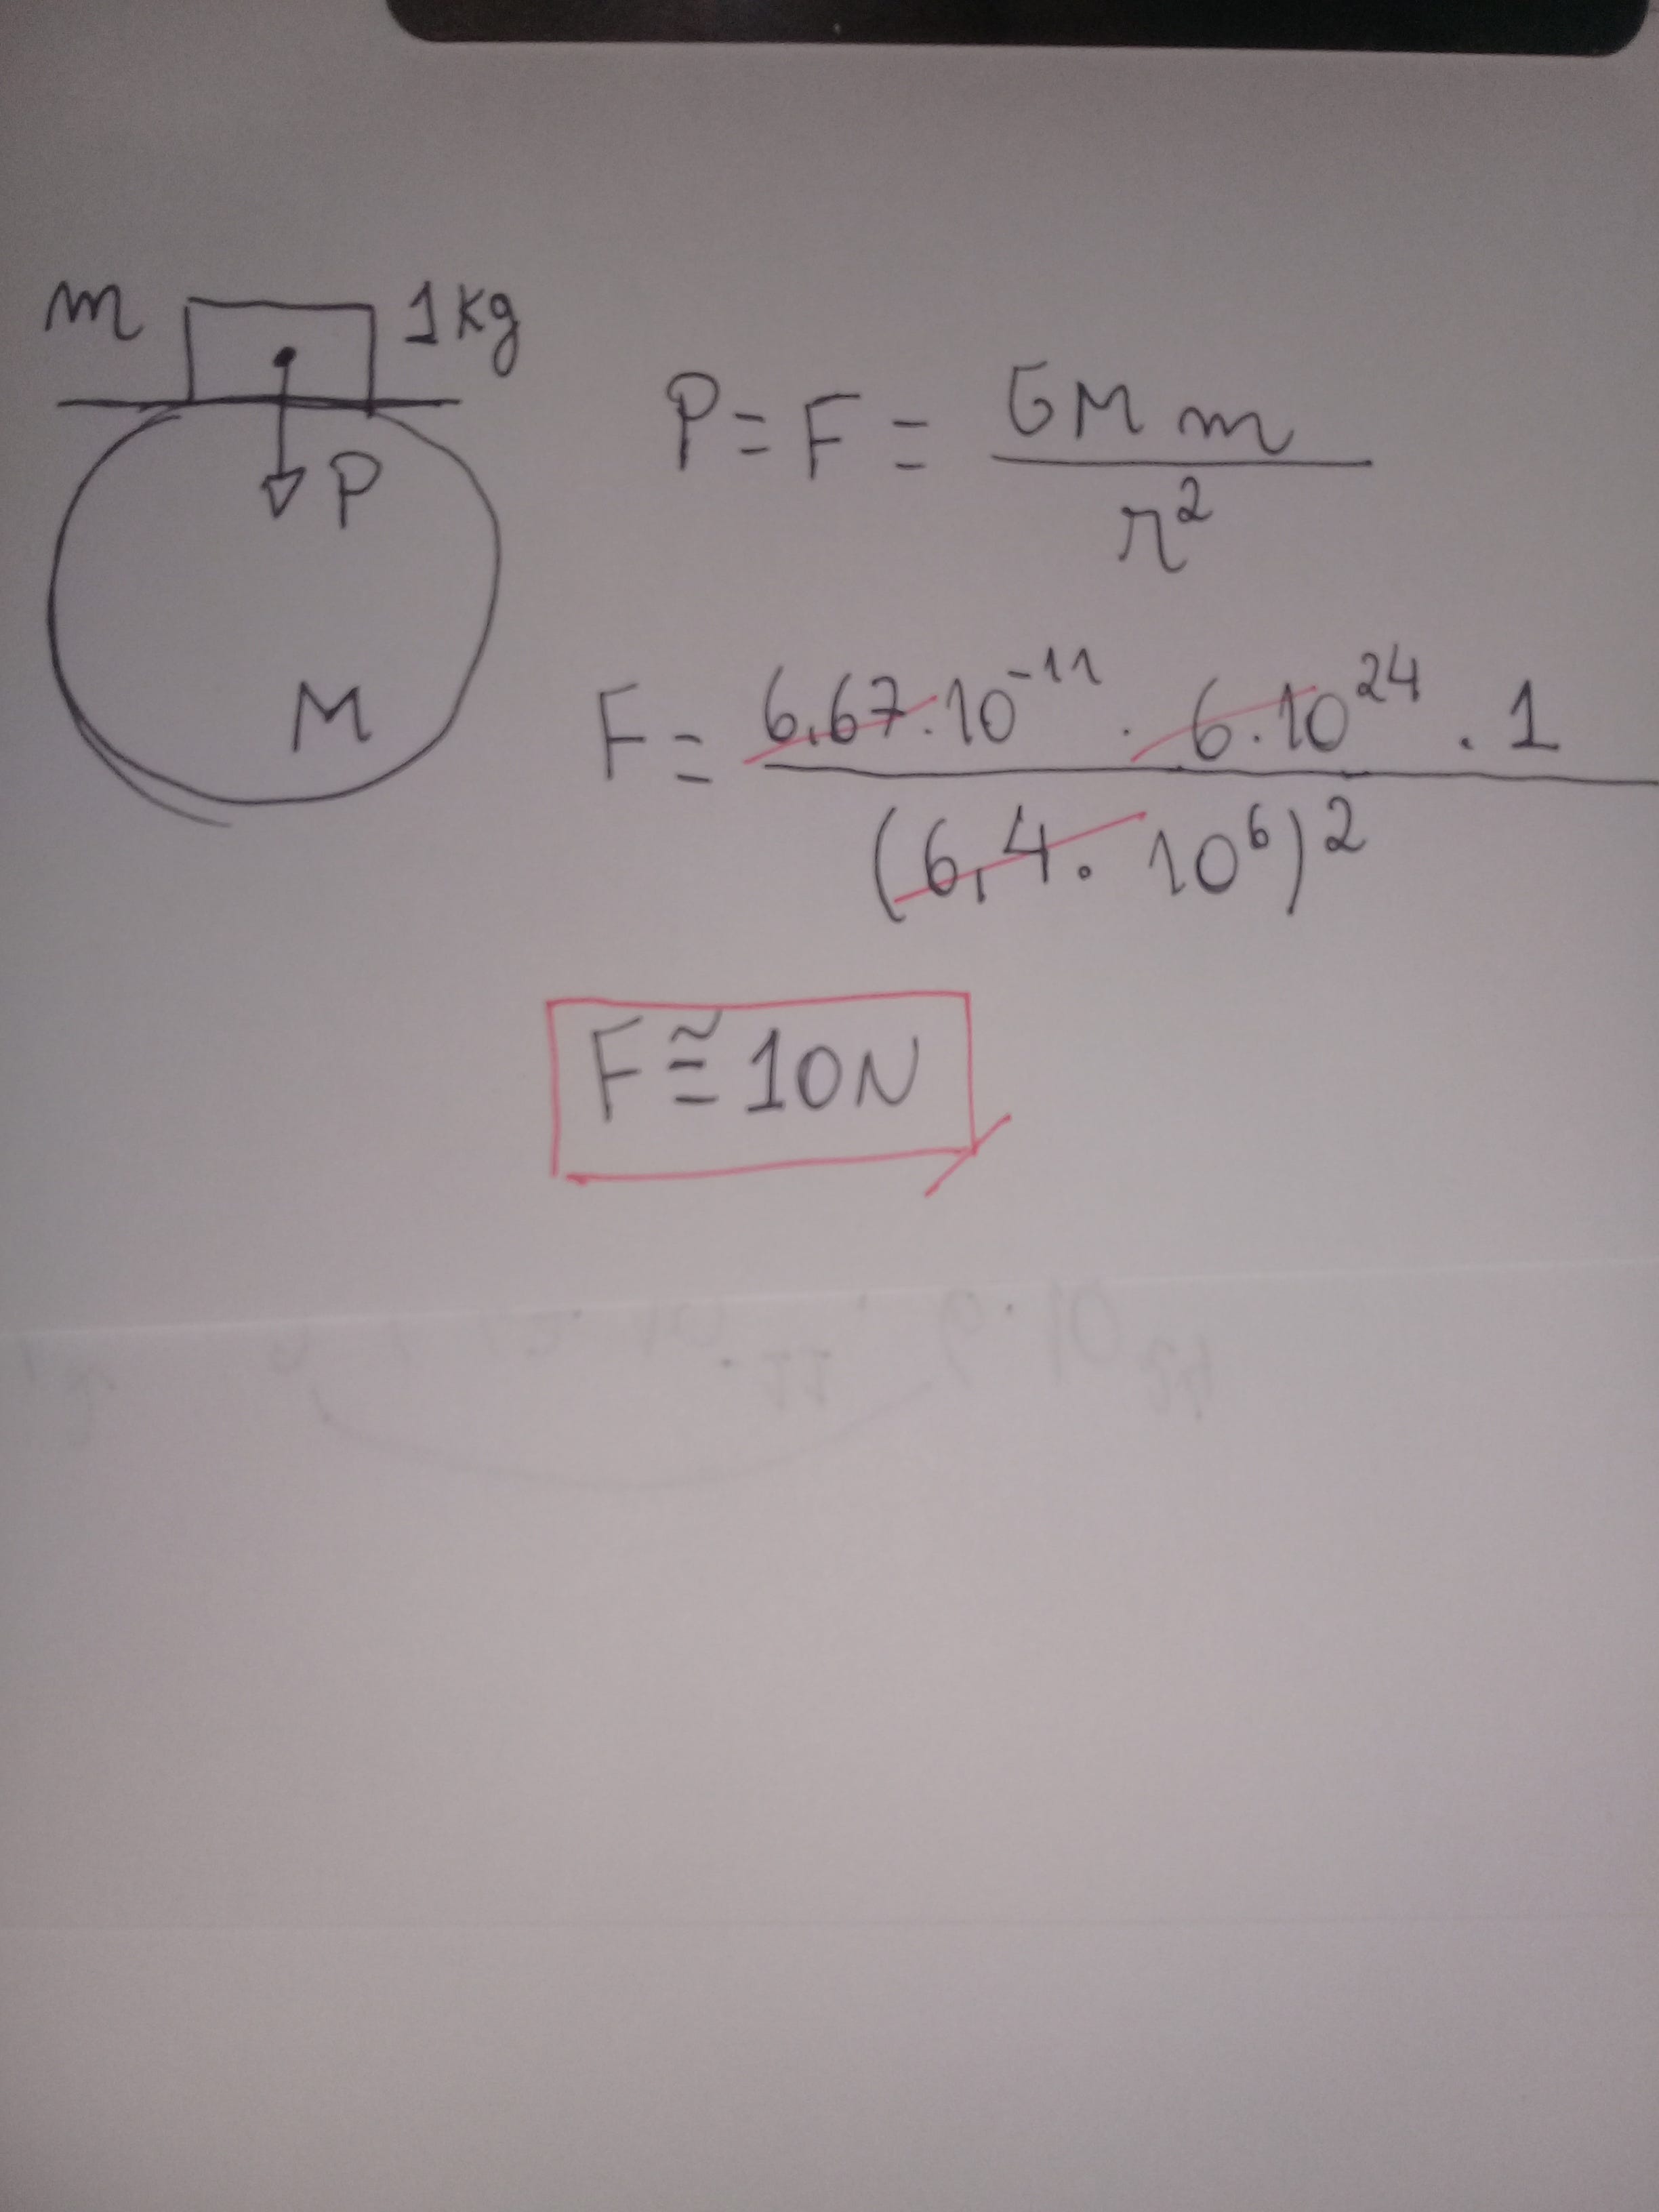 m 1kg
P
M
P = F = GMm / r²
F = 6,67·10⁻¹¹ · 6·10²⁴ · 1 / (6,4·10⁶)²
F ≅ 10N